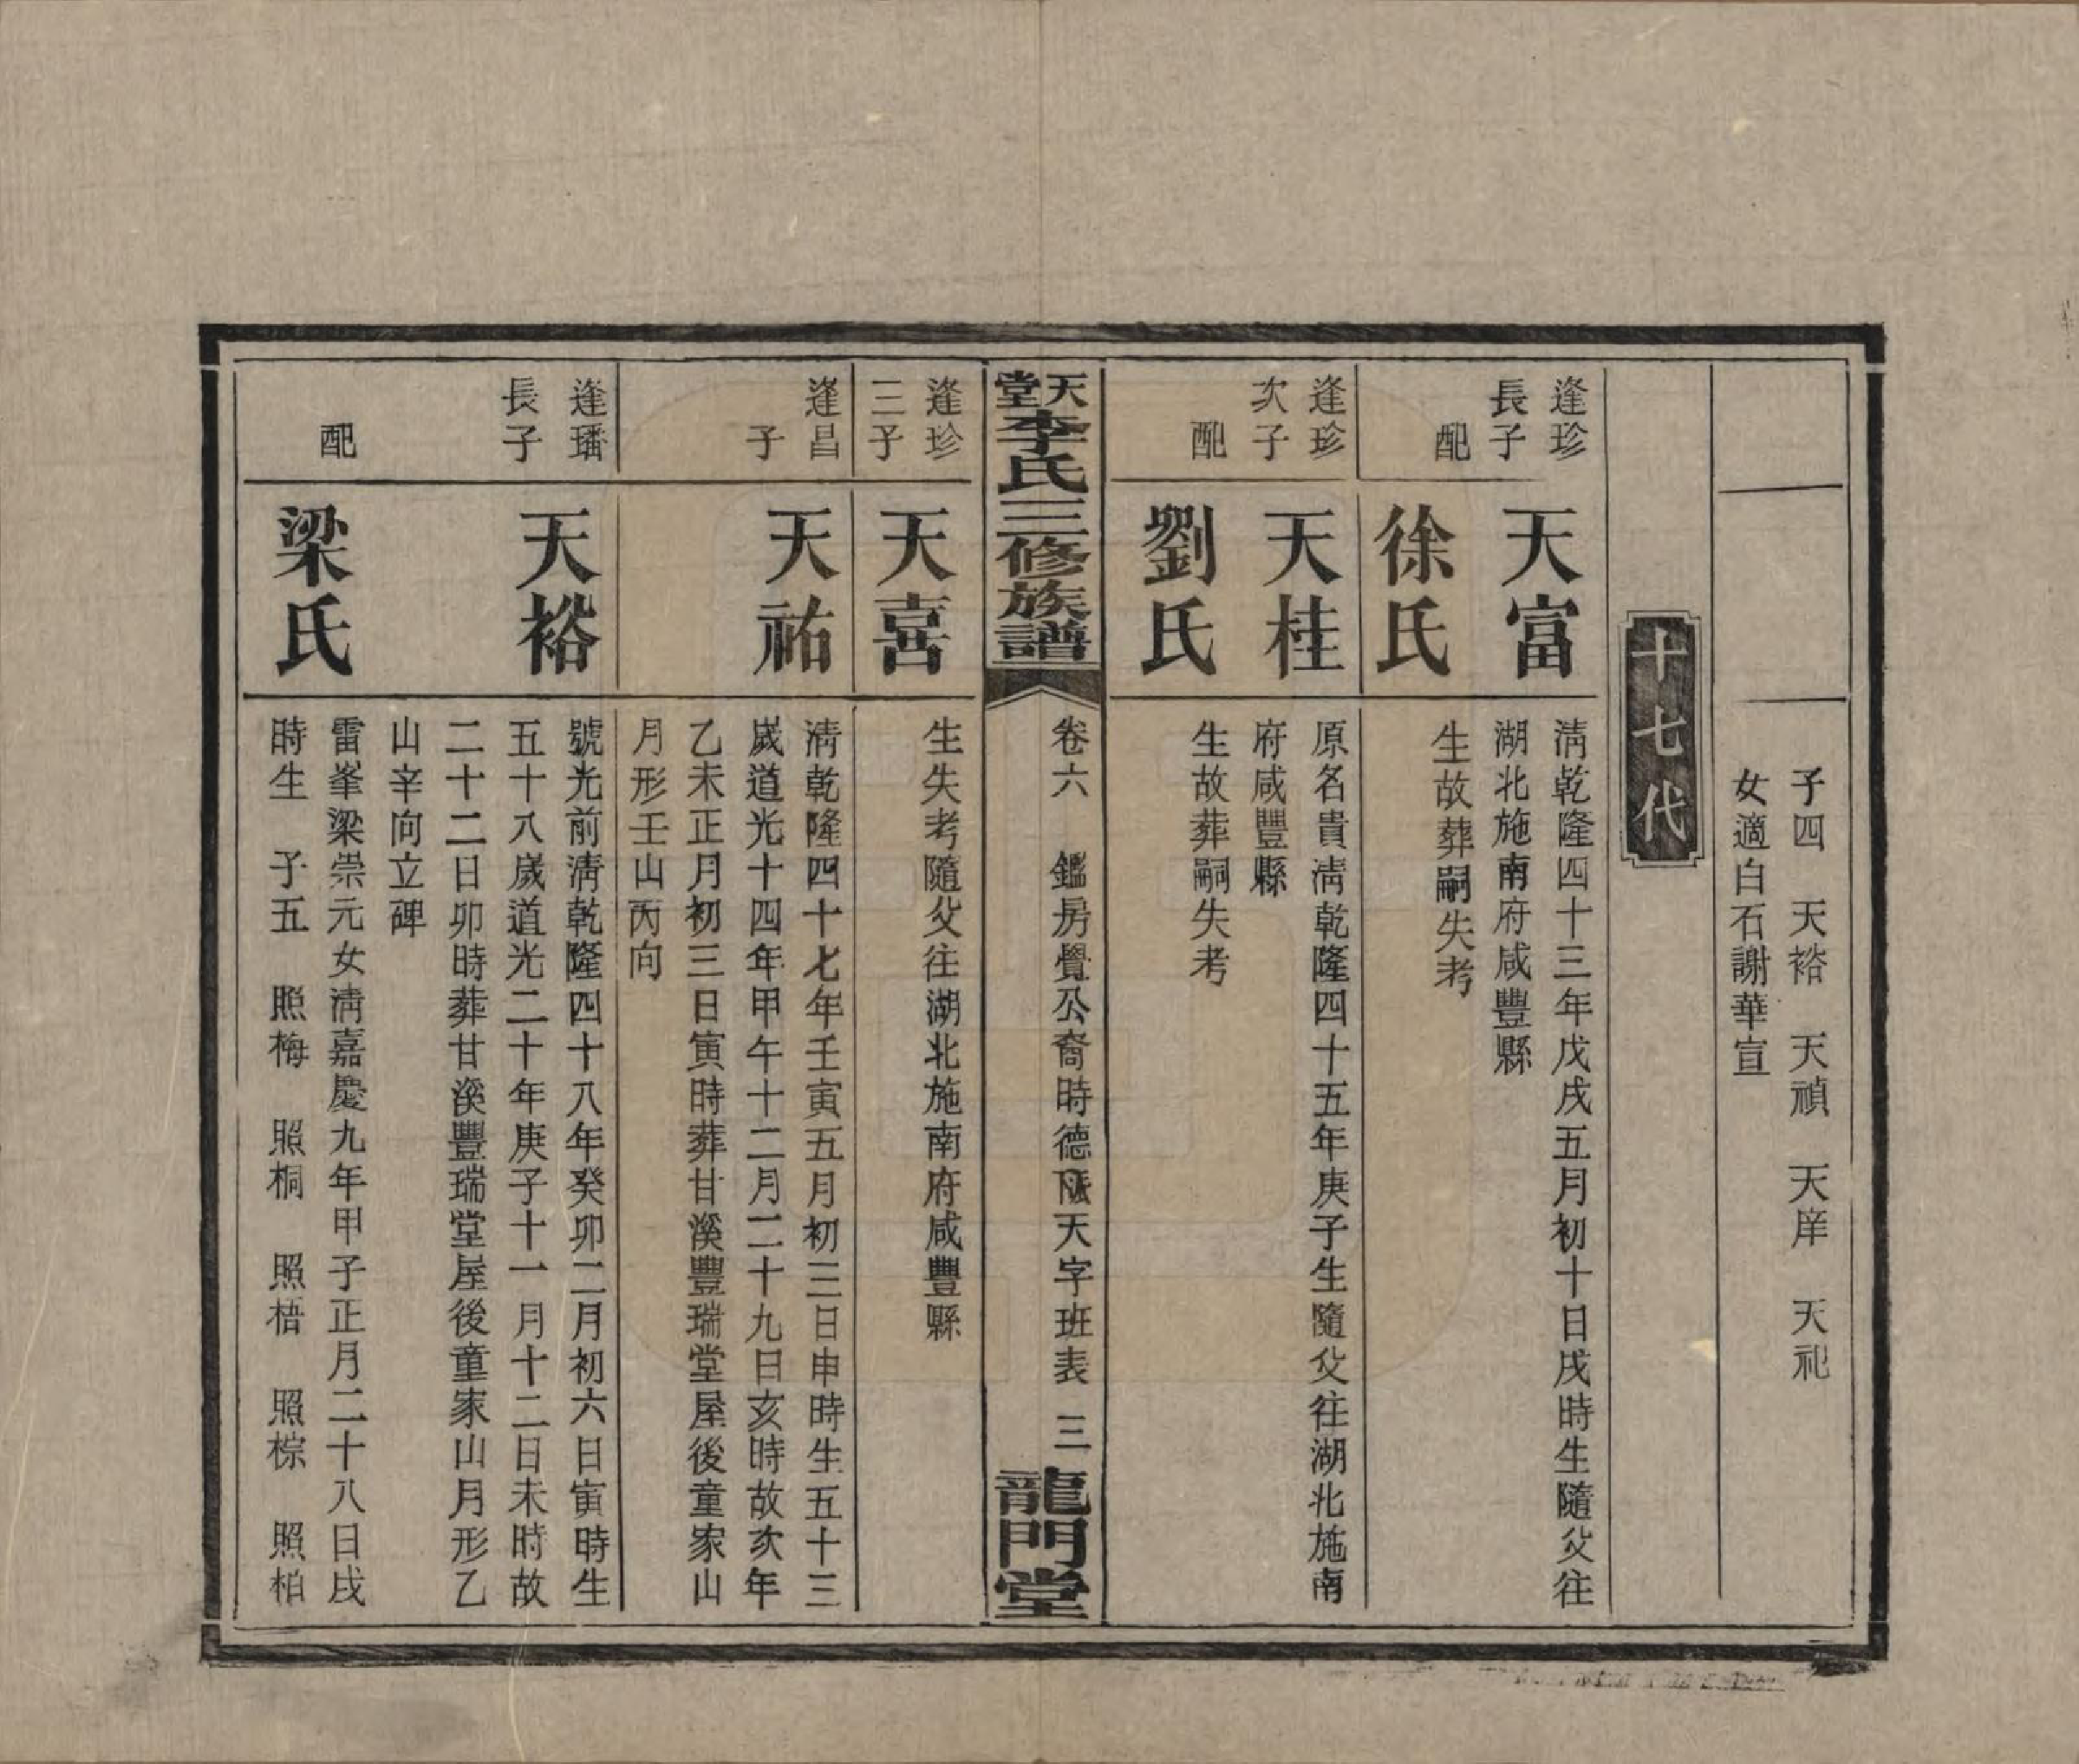 子四　天裕　天禎　天庠　天祀
女適白石謝華宣
十七代
逢珍
長子
天富
清乾隆四十三年戊戌五月初十日戌時生隨父往
湖北施南府咸豐縣
配
徐氏
生故葬嗣失考
逢珍
次子
天桂
原名貴清乾隆四十五年庚子生隨父往湖北施南
府咸豐縣
配
劉氏
生故葬嗣失考
天堂李氏三修族譜
卷六　鑑房覺公裔時德隲天字班表　三
龍門堂
逢珍
三子
天喜
生失考隨父往湖北施南府咸豐縣
逢昌
子
天祐
清乾隆四十七年壬寅五月初三日申時生五十三
歲道光十四年甲午十二月二十九日亥時故次年
乙未正月初三日寅時葬甘溪豐瑞堂屋後童家山
月形壬山丙向
逢璠
長子
天裕
號光前清乾隆四十八年癸卯二月初六日寅時生
五十八歲道光二十年庚子十一月十二日未時故
二十二日卯時葬甘溪豐瑞堂屋後童家山月形乙
山辛向立碑
配
梁氏
雷峯梁崇元女清嘉慶九年甲子正月二十八日戌
時生　子五　照梅　照桐　照梧　照棕　照柏